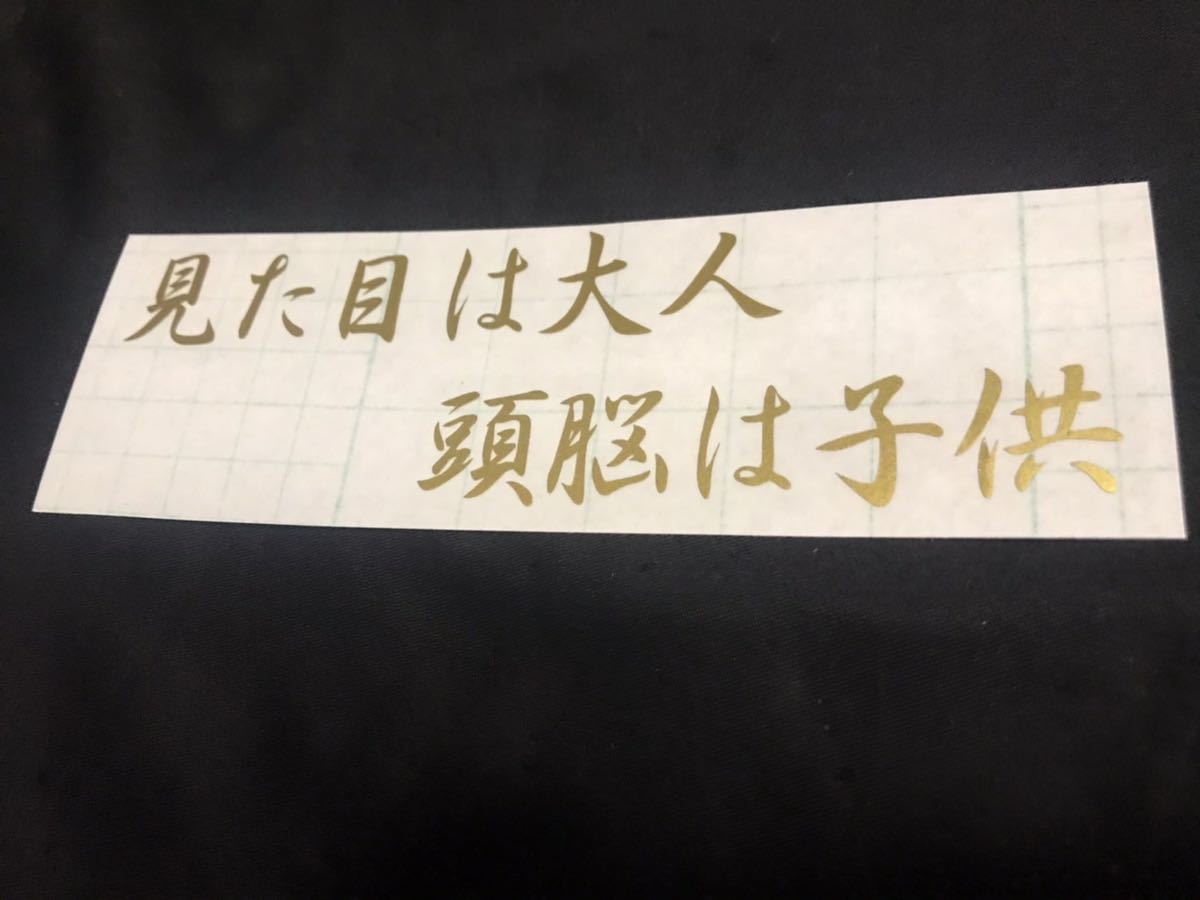 見た目は大人
頭脳は子供